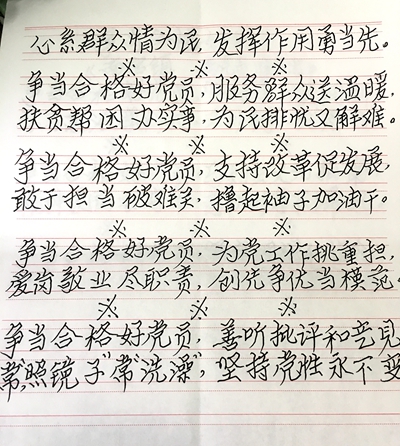 心系群众情为民,发挥作用勇当先。
※ ※ ※
争当合格好党员,服务群众送温暖,
扶贫帮困办实事,为民排忧又解难。
※ ※ ※
争当合格好党员,支持改革促发展,
敢于担当破难关,撸起袖子加油干。
※ ※ ※
争当合格好党员,为党工作挑重担,
爱岗敬业尽职责,创先争优当模范。
※ ※ ※
争当合格好党员,善听批评和意见
常“照镜子”常“洗澡”,坚持党性永不变